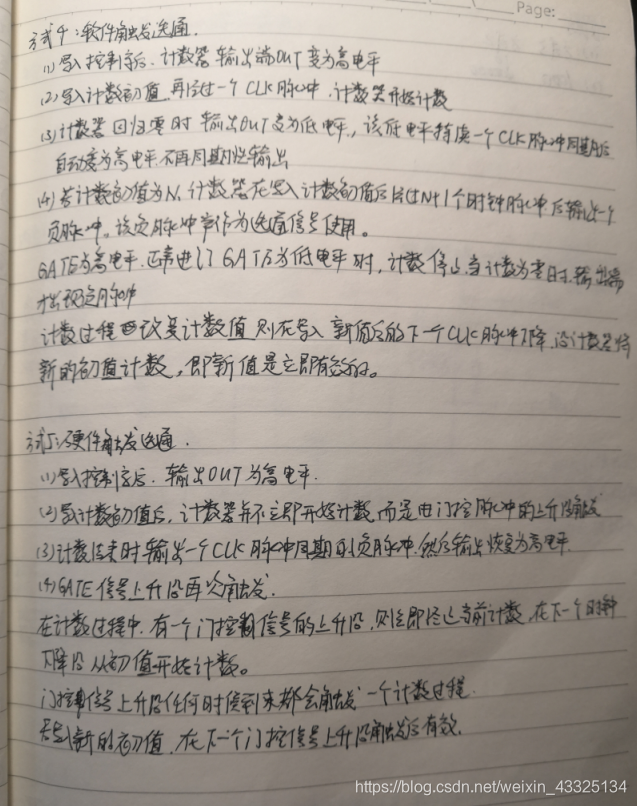 Page:
方式4:软件触发选通.
(1)写入控制字后.计数器输出端OUT变为高电平
(2)写入计数初值.再经过一个CLK脉冲.计数器开始计数
(3)计数器回归零时 输出OUT变为低电平,该低电平持续一个CLK脉冲周期后
自动变为高电平.不再周期输出
(4)若计数初值为N.计数器在写入计数初值后经过N+1个时钟脉冲后输出一个
负脉冲。该负脉冲常作为选通信号使用。
GATE为高电平.正常进行 GATE为低电平时,计数停止.当计数为零时.输出端
才出现负脉冲
计数过程改变计数值 则在写入新值后的下一个CLK脉冲下降沿计数器将
新的初值计数,即新值是立即有效的。
方式5:硬件触发选通.
(1)写入控制字后.输出OUT为高电平.
(2)写计数初值后,计数器并不立即开始计数,而是由门控脉冲的上升沿触发
(3)计数结束时输出一个CLK脉冲周期的负脉冲.然后输出恢复为高电平.
(4)GATE信号上升沿再次触发.
在计数过程中.有一个门控信号的上升沿,则立即终止当前计数,在下一个时钟
下降沿从初值开始计数。
门控信号上升沿任何时候到来都会触发一个计数过程.
写入新的初值,在下一个门控信号上升沿触发后有效.
https://blog.csdn.net/weixin_43325134